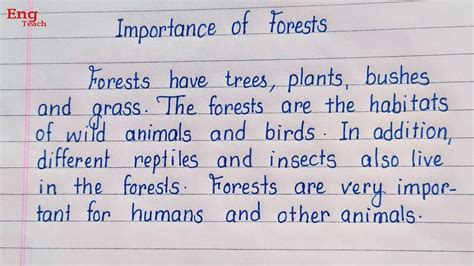 Eng
Teach
Importance of Forests
Forests have trees, plants, bushes
and grass. The forests are the habitats
of wild animals and birds. In addition,
different reptiles and insects also live
in the forests. Forests are very impor-
tant for humans and other animals.